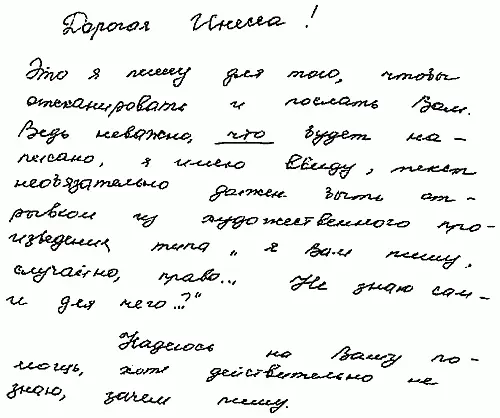 Дорогая Инесса!
Это я пишу для того, чтобы
отсканировать и послать Вам.
Ведь неважно, что будет на-
писано, я имею ввиду, текст
необязательно должен быть от-
рывком из художественного про-
изведения, типа „я Вам пишу,
случайно, право... Не знаю сам-
и для чего...?“
Надеюсь на Вашу по-
мощь, хотя действительно не
знаю, зачем пишу.